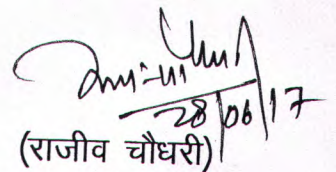 28/06/17
(राजीव चौधरी)